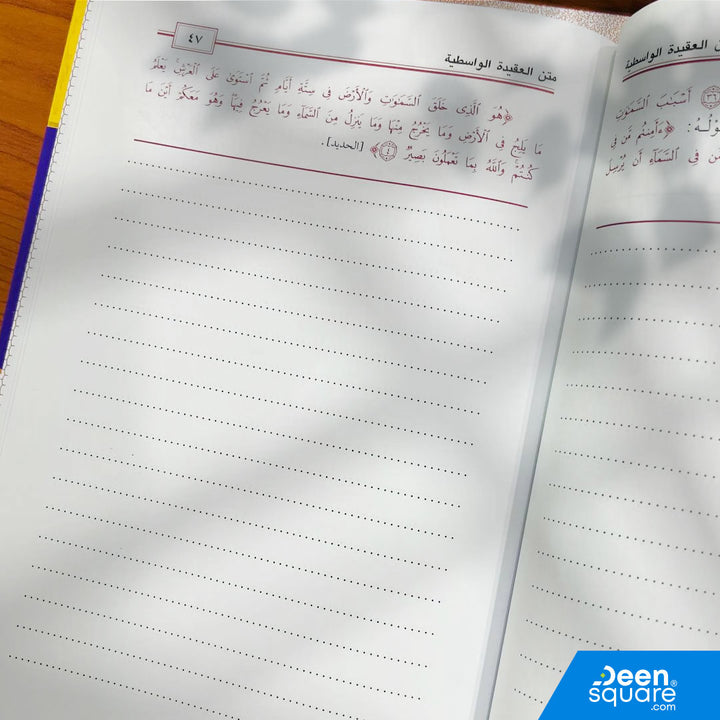 متن العقيدة الواسطية
٤٧
﴿هُوَ ٱلَّذِى خَلَقَ ٱلسَّمَٰوَٰتِ وَٱلْأَرْضَ فِى سِتَّةِ أَيَّامٍ ثُمَّ ٱسْتَوَىٰ عَلَى ٱلْعَرْشِ يَعْلَمُ
مَا يَلِجُ فِى ٱلْأَرْضِ وَمَا يَخْرُجُ مِنْهَا وَمَا يَنزِلُ مِنَ ٱلسَّمَآءِ وَمَا يَعْرُجُ فِيهَا وَهُوَ مَعَكُمْ أَيْنَ مَا
كُنتُمْ وَٱللَّهُ بِمَا تَعْمَلُونَ بَصِيرٌ ٤﴾ [الحديد].
العقيدة الواسطية
٣٦ أَسْبَٰبَ ٱلسَّمَٰوَٰتِ
﴿ءَأَمِنتُم مَّن فِى
مَّن فِى ٱلسَّمَآءِ أَن يُرْسِلَ
Deen
square®
.com